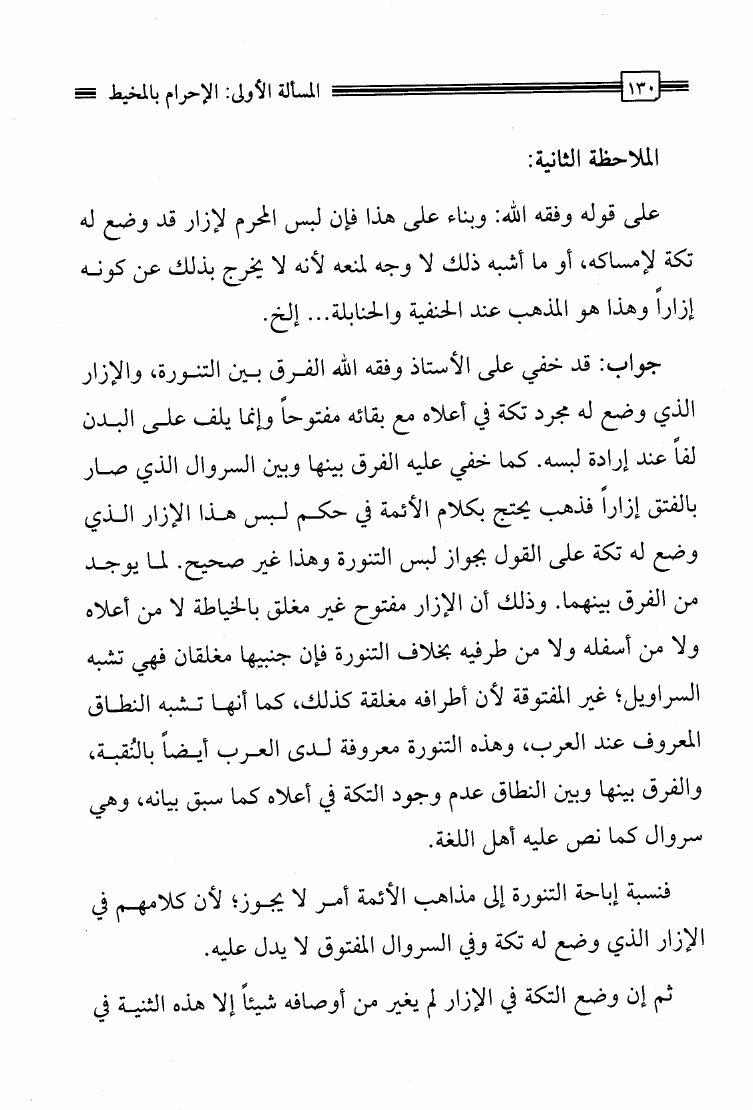 ١٣٠ المسألة الأولى: الإحرام بالمخيط
الملاحظة الثانية:
على قوله وفقه الله: وبناء على هذا فإن لبس المحرم لإزار قد وضع له
تكة لإمساكه، أو ما أشبه ذلك لا وجه لمنعه لأنه لا يخرج بذلك عن كونه
إزاراً وهذا هو المذهب عند الحنفية والحنابلة... إلخ.
جواب: قد خفي على الأستاذ وفقه الله الفرق بين التنورة، والإزار
الذي وضع له مجرد تكة في أعلاه مع بقائه مفتوحاً وإنما يلف على البدن
لفاً عند إرادة لبسه. كما خفي عليه الفرق بينها وبين السروال الذي صار
بالفتق إزاراً فذهب يحتج بكلام الأئمة في حكم لبس هذا الإزار الذي
وضع له تكة على القول بجواز لبس التنورة وهذا غير صحيح. لما يوجد
من الفرق بينهما. وذلك أن الإزار مفتوح غير مغلق بالخياطة لا من أعلاه
ولا من أسفله ولا من طرفيه بخلاف التنورة فإن جنبيها مغلقان فهي تشبه
السراويل؛ غير المفتوقة لأن أطرافه مغلقة كذلك، كما أنها تشبه النطاق
المعروف عند العرب، وهذه التنورة معروفة لدى العرب أيضاً بالنُقبة،
والفرق بينها وبين النطاق عدم وجود التكة في أعلاه كما سبق بيانه، وهي
سروال كما نص عليه أهل اللغة.
فنسبة إباحة التنورة إلى مذاهب الأئمة أمر لا يجوز؛ لأن كلامهم في
الإزار الذي وضع له تكة وفي السروال المفتوق لا يدل عليه.
ثم إن وضع التكة في الإزار لم يغير من أوصافه شيئاً إلا هذه الثنية في